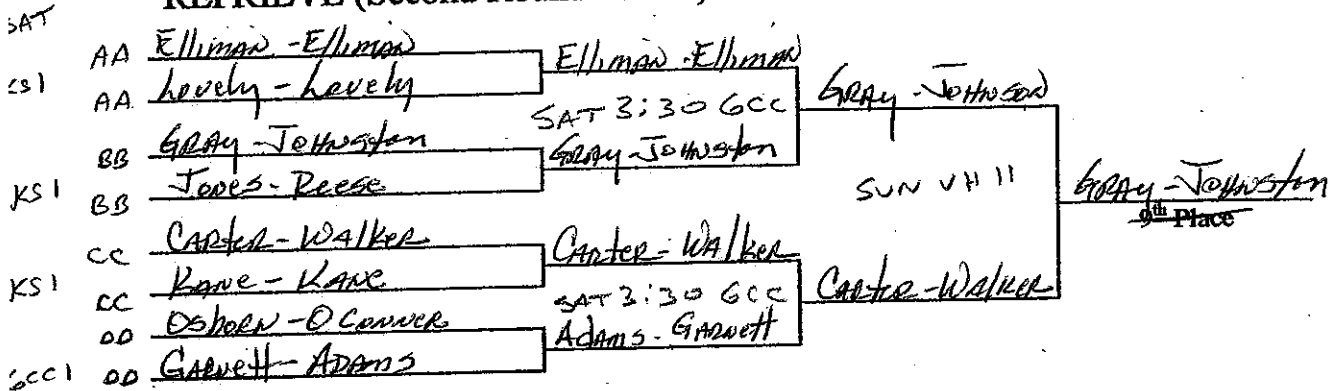 SAT
AA Elliman - Elliman
AA Lovely - Lovely
BB GRAY - JOHNSton
KS 1 BB Jones - Reese
CC CARter - WAlKer
KS 1 CC KANe - KANe
DD OsboRN - O ConNeR
GCC 1 DD GARNett - ADAMS
Elliman - Elliman
SAT 3:30 GCC
GRAY - JOHNSton
CARter - WAlker
SAT 3:30 GCC
Adams - GARNett
GRAY - JOHNSON
SUN VH 11
CARter - WAlKer
GRAY - JOHNSton
9th Place